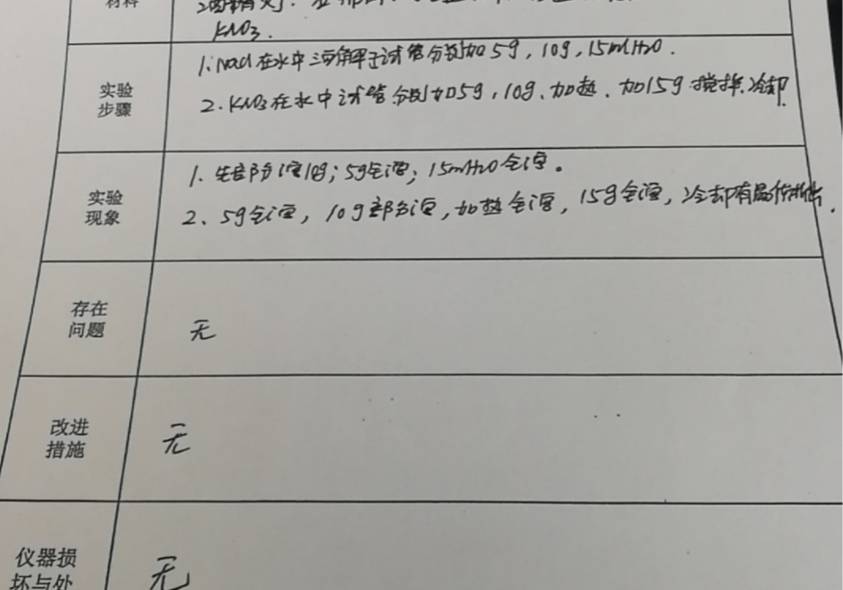 材料
KNO3.
实验
步骤
1. NaCl在水中溶解于试管分别加5g, 10g, 15mlH2O.
2. KNO3在水中试管分别加5g, 10g、加热、加15g 搅拌.冷却.
实验
现象
1. 部分溶10g; 5g全溶; 15mlH2O全溶。
2、5g全溶, 10g部分溶, 加热全溶, 15g全溶, 冷却有晶体析出.
存在
问题
无
改进
措施
无
仪器损
坏与处
无